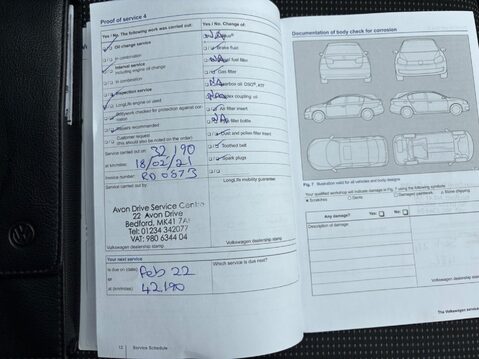 Proof of service 4
Yes / No. The following work was carried out:
Oil change service
In combination
Interval service
including engine oil change
In combination
Inspection service
LongLife engine oil used
Bodywork checked for protection against corrosion
Repairs recommended
Customer request
(this should also be noted on the order)
Service carried out on: 32 190
at km/miles: 18/02/21
Invoice number: RD 0873
Service carried out by
Avon Drive Service Centre
22 Avon Drive
Bedford. MK41 7A
Tel: 01234 342077
VAT; 980 6344 04
Volkswagen dealership stamp
Yes / No. Change of:
Brake fluid
NA fuel filter
Gas filter
NA
NA coupling oil
Air filter insert
NA filter bottle
Dust and pollen filter insert
Toothed belt
Spark plugs
LongLife mobility guarantee
Volkswagen dealership stamp
Your next service
is due on (date) Feb 22
or
at (km/miles) 42190
Which service is due next?
12 Service Schedule
Documentation of body check for corrosion
Fig. 7 Illustration valid for all vehicles and body designs
Your qualified workshop will indicate damage in Fig. 7 using the following symbols:
Scratches Dents Damaged paintwork Stone chipping
Any damage? Yes No
Description of damage:
Volkswagen dealership stamp
The Volkswagen service